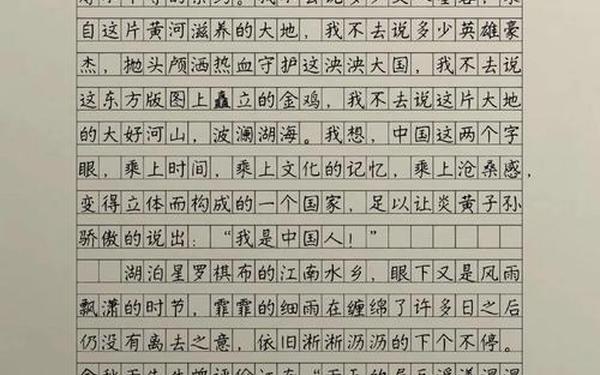 自这片黄河滋养的大地，我不去说多少英雄豪
杰，抛头颅洒热血守护这泱泱大国，我不去说
这东方版图上矗立的金鸡，我不去说这片大地
的大好河山，波澜湖海。我想，中国这两个字
眼，乘上时间，乘上文化的记忆，乘上沧桑感，
变得立体而构成的一个国家，足以让炎黄子孙
骄傲的说出：“我是中国人！”
湖泊星罗棋布的江南水乡，眼下又是风雨
飘潇的时节，霏霏的细雨在缠绵了许多日之后
仍没有离去之意，依旧淅淅沥沥的下个不停。